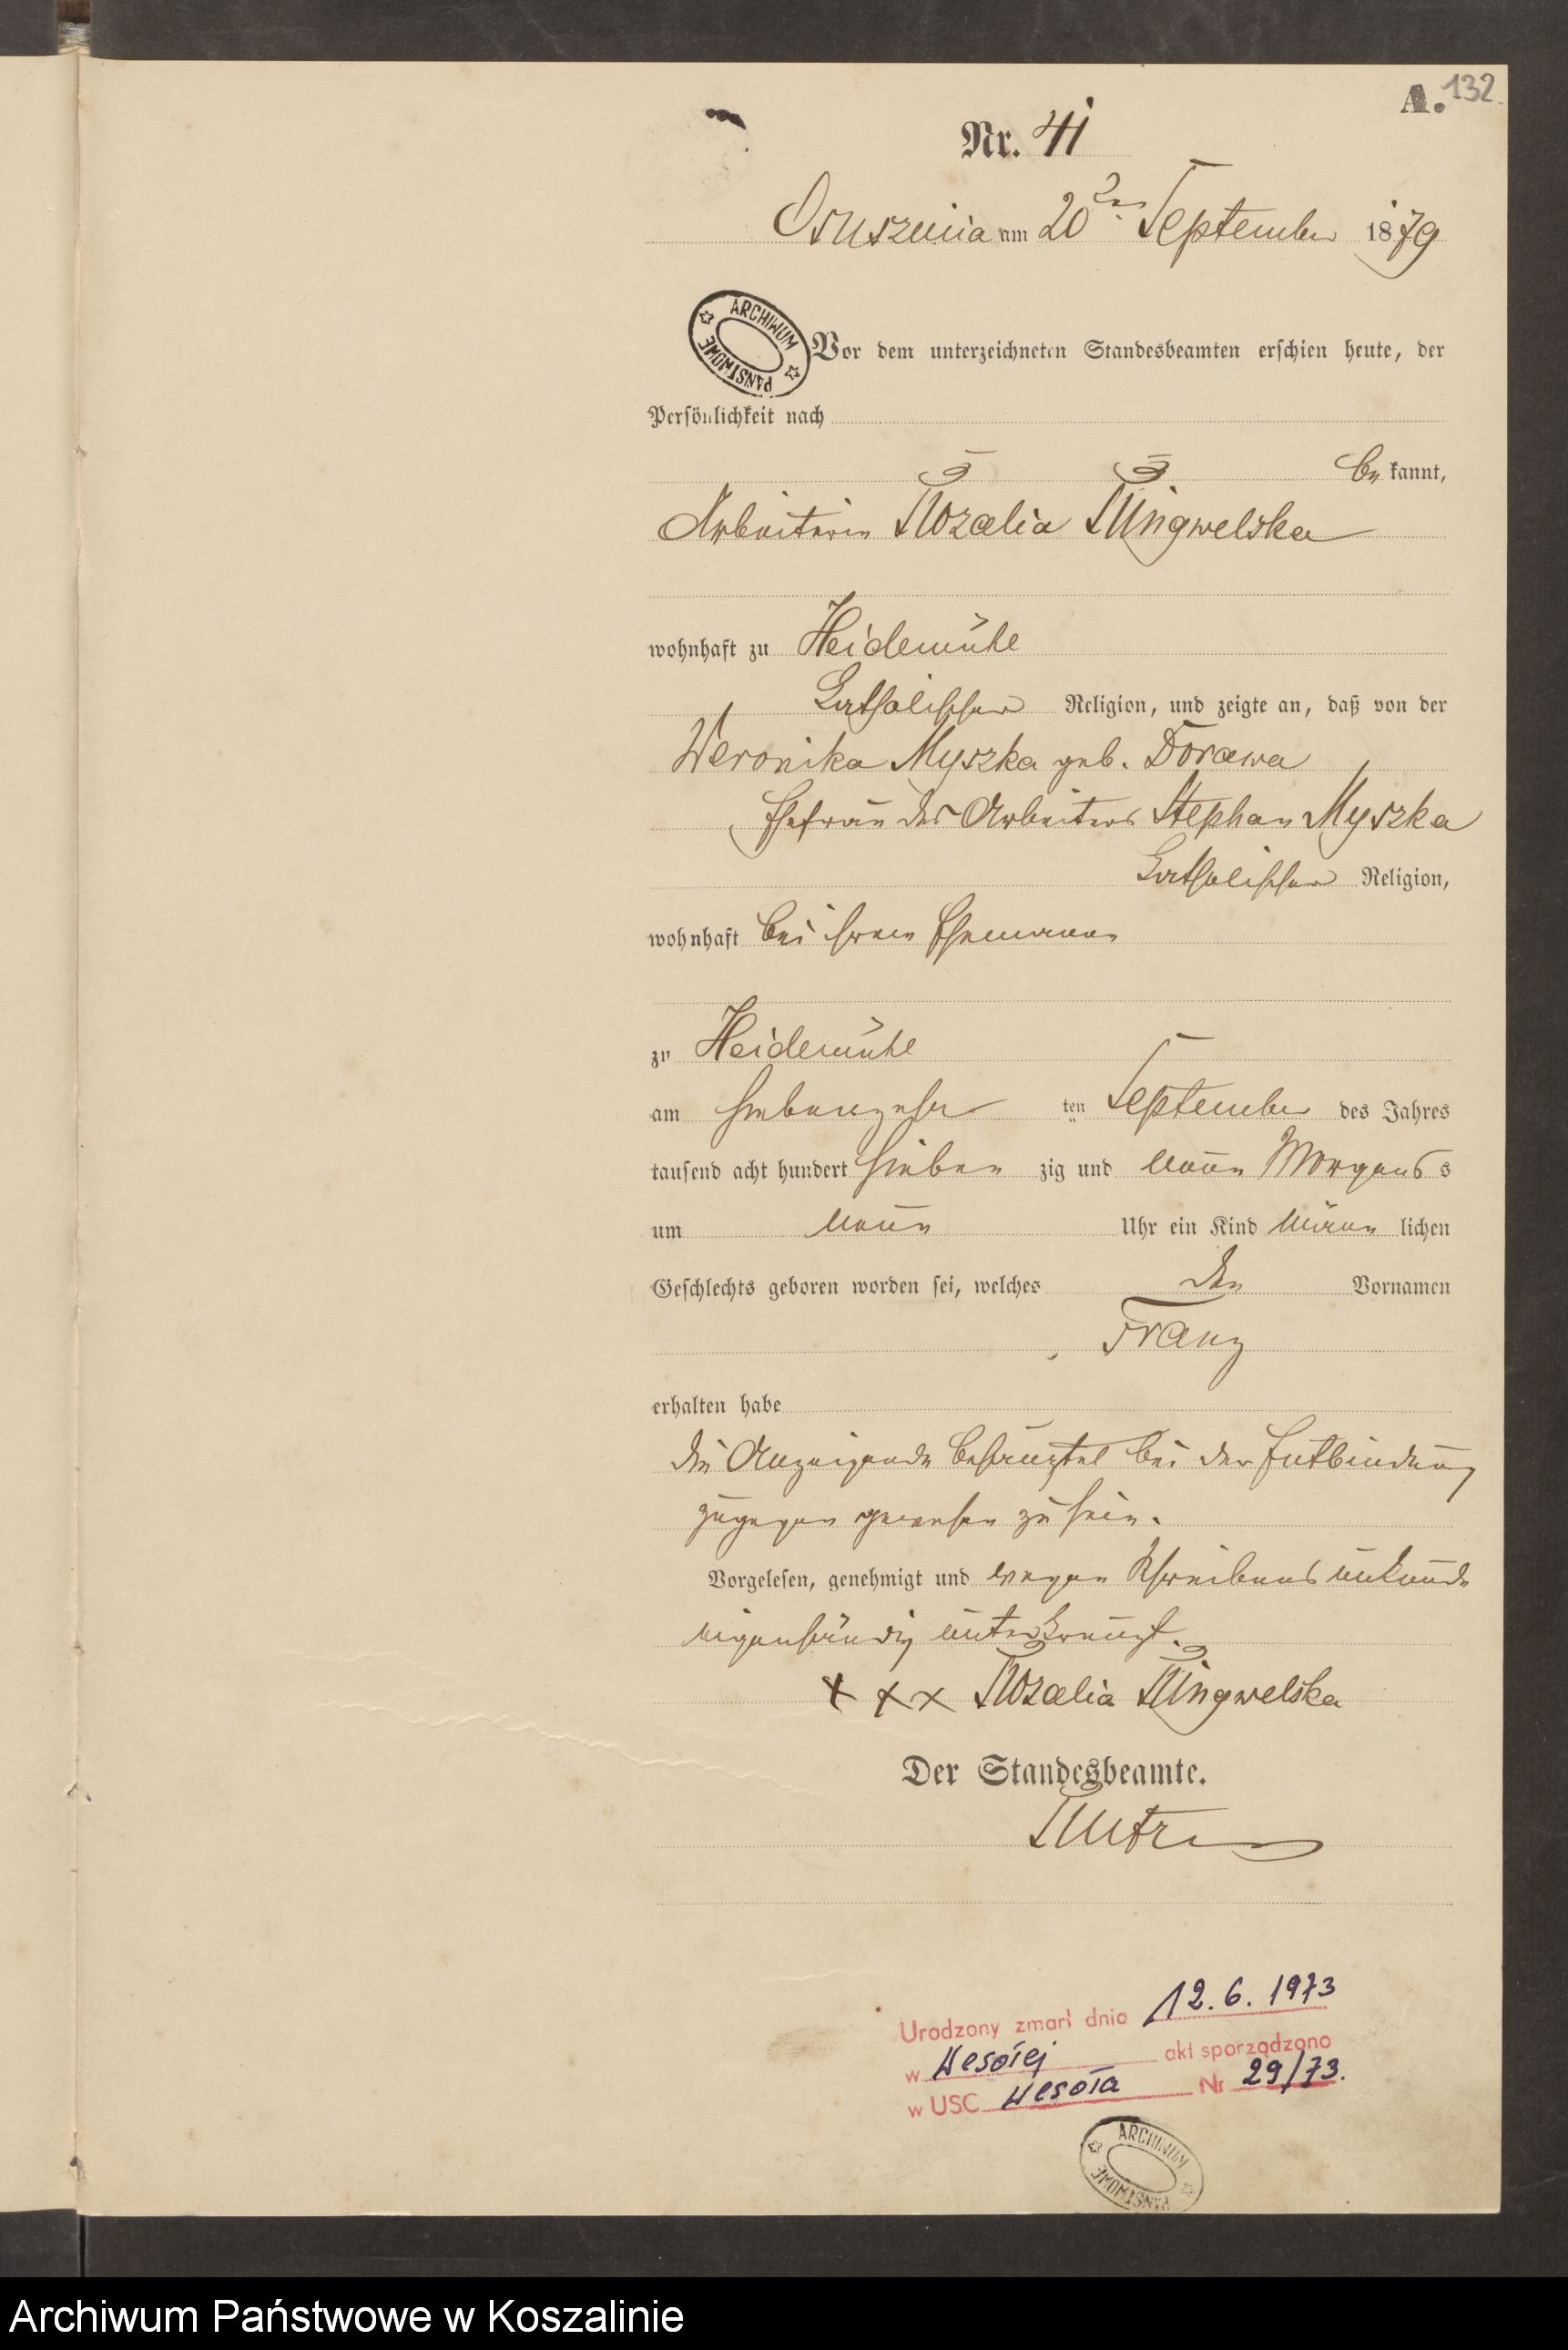 A. 132.
Nr. 41
Osuszniça am 20ten September 1879
ARCHIWUM PAŃSTWOWE
Vor dem unterzeichneten Standesbeamten erschien heute, der
Persönlichkeit nach
be kannt,
Arbeiterin Rozalia Ringwelska
wohnhaft zu Heidemühl
katholischer Religion, und zeigte an, daß von der
Weronika Myszka geb. Dorawa
Ehefrau des Arbeiters Stephan Myszka
katholischer Religion,
wohnhaft bei ihrem Ehemann
zu Heidemühl
am siebenzehn ten September des Jahres
tausend acht hundert sieben zig und neun Morgens s
um neun Uhr ein Kind männ lichen
Geschlechts geboren worden sei, welches den Vornamen
Franz
erhalten habe
die Anzeigende bei der Entbindung
zugegen gewesen zu sein.
Vorgelesen, genehmigt und wegen Schreibens unkunde
eigenhändig unterkreuzt.
x x x Rozalia Ringwelska
Der Standesbeamte.
Urodzony zmarł dnia 12.6.1973
w Wesołej akt sporządzono
w USC Wesoła Nr 29/73.
ARCHIWUM PAŃSTWOWE
Archiwum Państwowe w Koszalinie